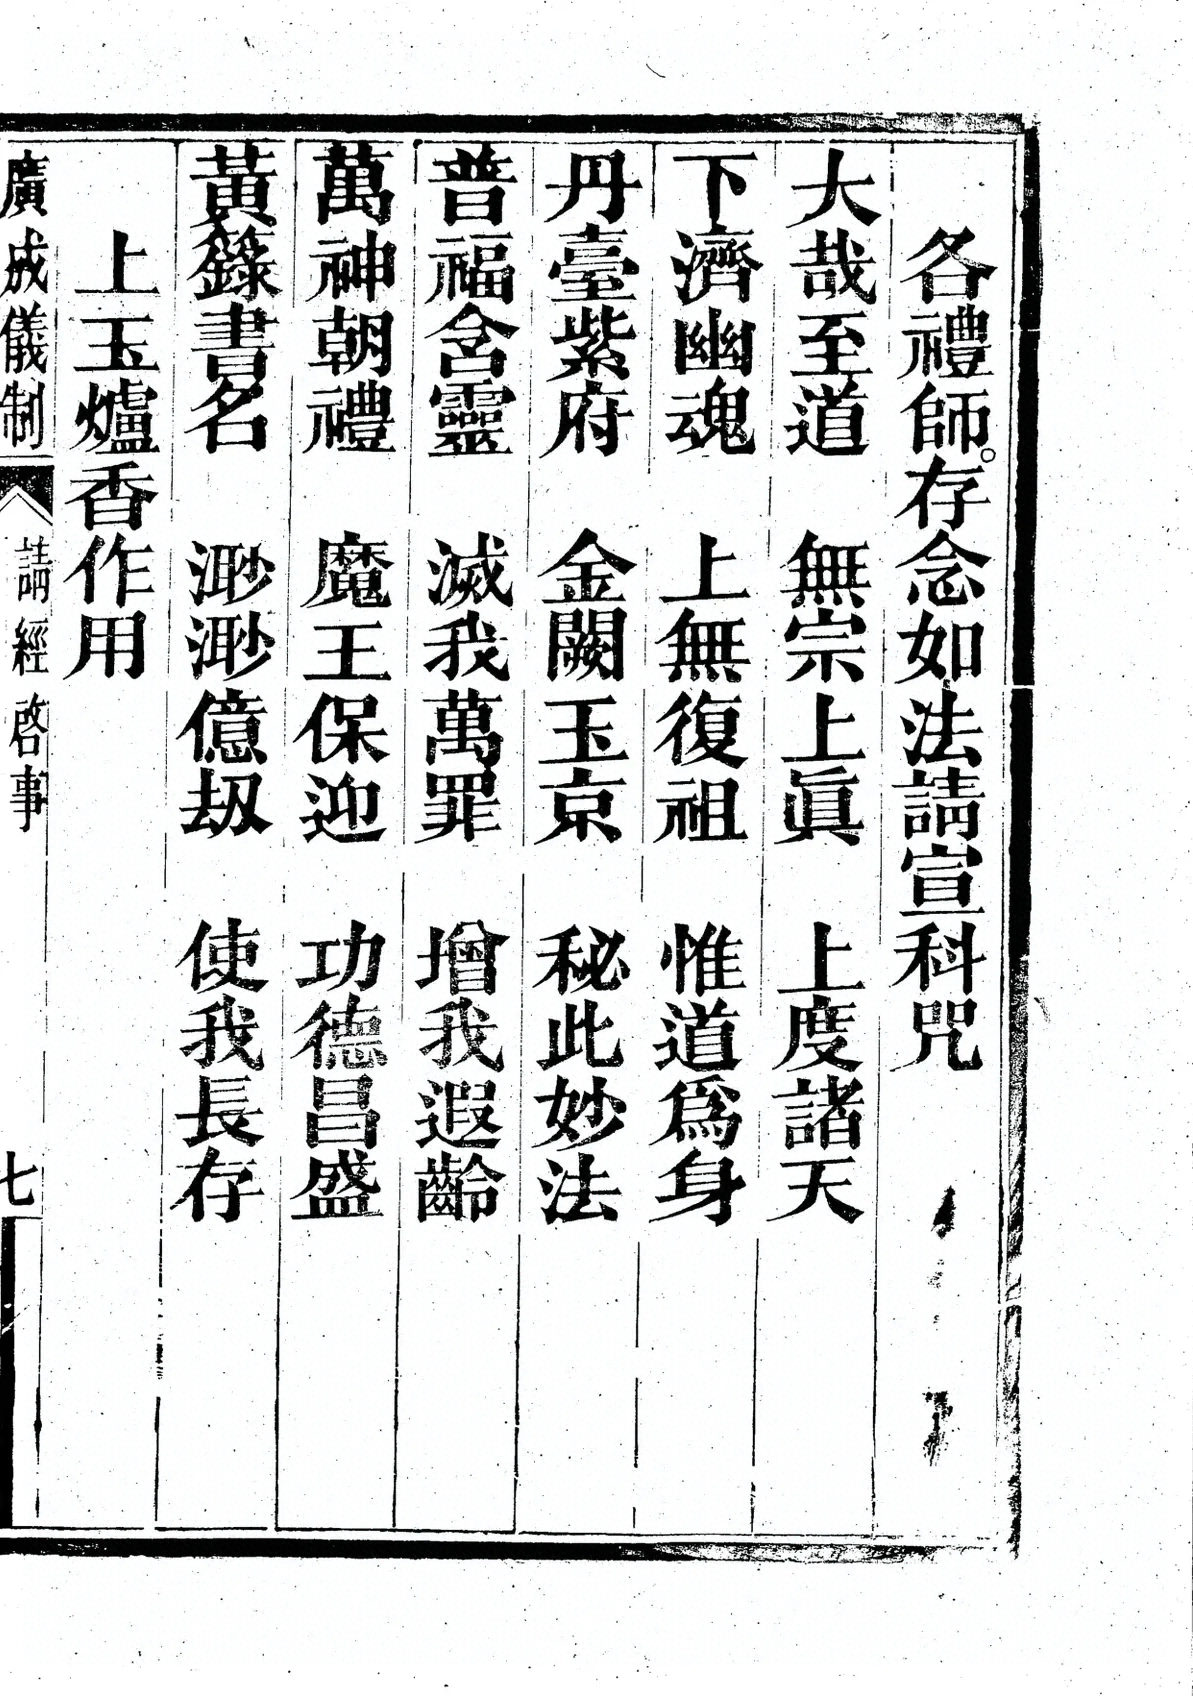 各禮師。存念如法請宣科咒
大哉至道　無宗上眞　上度諸天
下濟幽魂　上無復祖　惟道爲身
丹臺紫府　金闕玉京　秘此妙法
普福含靈　滅我萬罪　增我遐齡
萬神朝禮　魔王保迎　功德昌盛
黃籙書名　渺渺億劫　使我長存
上玉爐香作用
廣成儀制　請經啓事　七